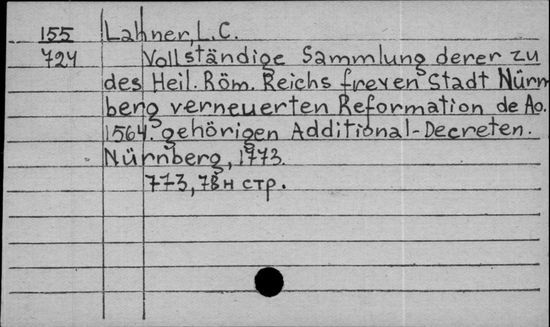 155 Lahner, L.C.
724 Vollständige Sammlung derer zu
des Heil. Röm. Reichs freyen Stadt Nürn
berg verneuerten Reformation de Ao.
1564. gehörigen Additional-Decreten.
Nürnberg, 1773.
773, 78н стр.